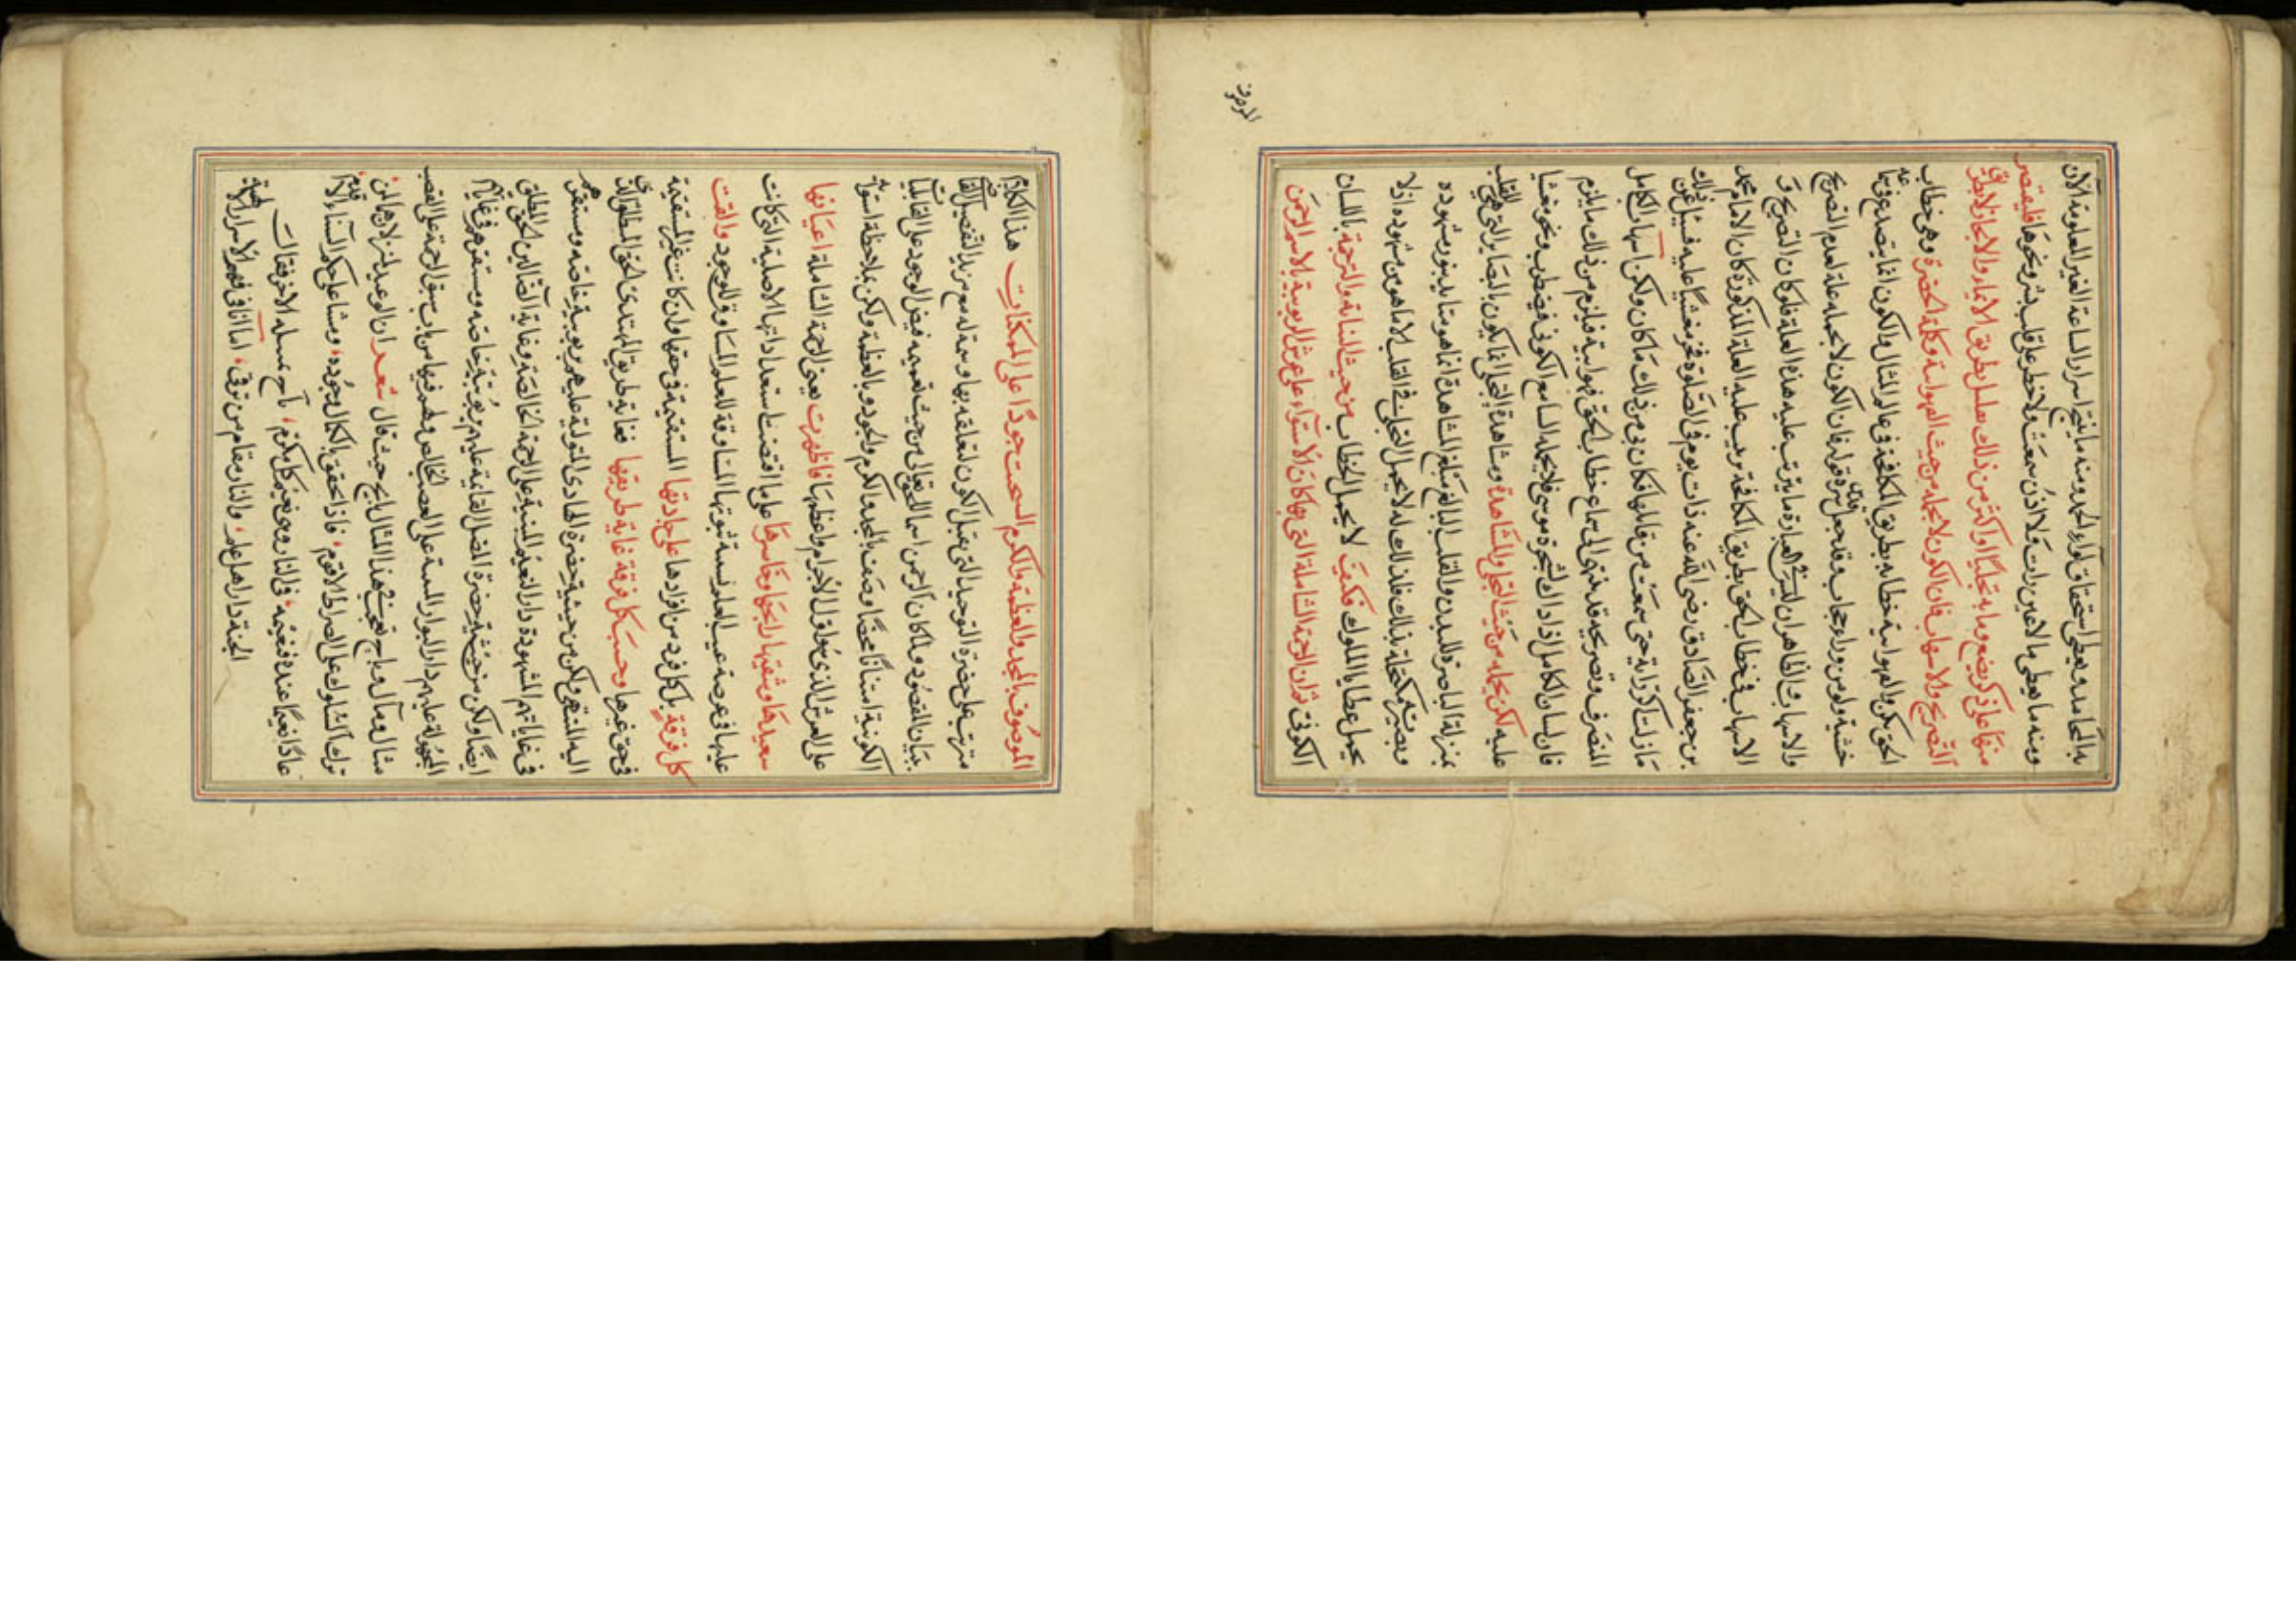 به المحامد ويعطى استحقاق لواء الحمد ومنه ما ينتج اسرار الساعة الغير المعلومة الآن
ومنه ما يعطى ما لا عين رات ولا اذن سمعت ولا خطر على قلب بشر ونحوها فليقتصر
منها على ذكر بضع وما به تجليا او اكثر من ذلك بقليل بطريق الايماء والايجاز لا بطريق
التصريح والاسهاب فان الكون لا يحمله من حيث الفهوانية وكلمة الحضرة وهى خطاب
الحق بكن والفهوانية خطابه بطريق المكافحة فى عالم المثال والكون انما يتصدع فيما
خشية ولو من وراء حجاب وقد جعل قدس سره قوله فان الكون لا يحمله علة لعدم التصريح
والاسهاب والظاهر ان ليس فى العبارة ما يترتب عليه هذه العلة فلو كان التصريح و
الاسهاب فى خطاب الحق بطريق المكافحة ترتب عليه العلة المذكورة كان الامام محمد
بن جعفر الصادق رضى الله عنه ذات يوم فى الصلوة فخر مغشيا عليه فسئل عن ذلك
ما زلت اكرر آية حتى سمعت من قائلها فكان بى من ذلك ما كان ولكن اسهاب الكامل
المتصرف وتصريحه قد ينتهى الى سماع خطاب الحق فهوانية فيلزم من ذلك ما يلزم
فان لسان الكامل اذ ذاك كشجرة موسى فلا يحمله السامع الكونى فيضطرب ويخر مغشيا
عليه لكن يحمله من حيث التجلى والمشاهدة ومشاهدة التجلى انما يكون بالبصائر التى هى للقلب
بمنزلة الباصرة للبدن والقلب البالغ مبلغ المشاهدة انما هو متايد بنور مشهوده
وبصيرته مكتحلة بذلك فلذلك لا يحمل التجلى فى القلب الا ما هو من مشهوده اذ لا
يحمل عطايا الملوك فكيف لا يحمل الخطاب من حيث النيابة والترجمة باللسان
الكونى ثم ان الرحمة الشاملة التى بها كان الاستواء على عرش الربوبية بالاسم الرحمن
الموصوف
الموصوف بالمجد والعظمة والكرم انسحبت جودا على الممكنات هذا الكلام
مترتب على حضرة التوحيد التى يقبل الكون لتعلقه بها وسعة له مع مزيد التفصيل
ببيان المقصود ولما كان الرحمن اسما للحق تعالى من حيث تعميمه فيض الوجود على القابليات
الكونية امتنانا محضا وصف بالمجد والكرم والجود وبالعظمة ولكن بملاحظة استوائه
على العرش الذى هو اول الاجرام واعظمها فاظهرت يعنى الرحمة الشاملة اعيانها
سعيدها وشقيها رابحها وخاسرها على ما اقتضت استعداداتها الاصلية التى كانت
عليها فى عرصة غيب العلم ونسبة ثبوتها المساوقة للعلم المساوق للوجود والقت
كل فرقة بل كل فرد من افرادها على جادتها المستقيمة فى حقها وان كانت غير المستقيمة
فى حق غيرها وحسب كل فرقة غاية طريقها فغاية طريق المهتدى الحق المطلق الذى
اليه المنتهى ولكن من حيثية حضرة الهادى المتولية عليهم بربوبية خاصة ومستقرهم
فى غاياتهم المشهودة دار النعيم المبنية على الرحمة الخالصة وغاية الضالين الحق المطلق
ايضا ولكن من حيثية حضرة المضل القائمة عليهم بربوبية خاصة ومستقرهم فى غاياتهم
المجهولة عليهم دار البوار المبنية على الغضب الخالص ولهم فيها من باب سبق الرحمة على الغضب
منال ومآل وما ح تعجب فى هذا المثال ابح حيث قال شعر ان الوعيد لمنزلان هما لمن
ترك السلوك على الصراط الاقوم، فاذا تحقق بالكمال وجوده، ومشى على حكم السناء الاقدم
عادا نعيما عنده فنعيمه، فى النار وهى نعيم كل مكرم، ناسج مسلكه الاخر فقالت
الجنة دار اهل علم، والنار مقام من ترقى، اما انا فى فهم الاسرار الالهية